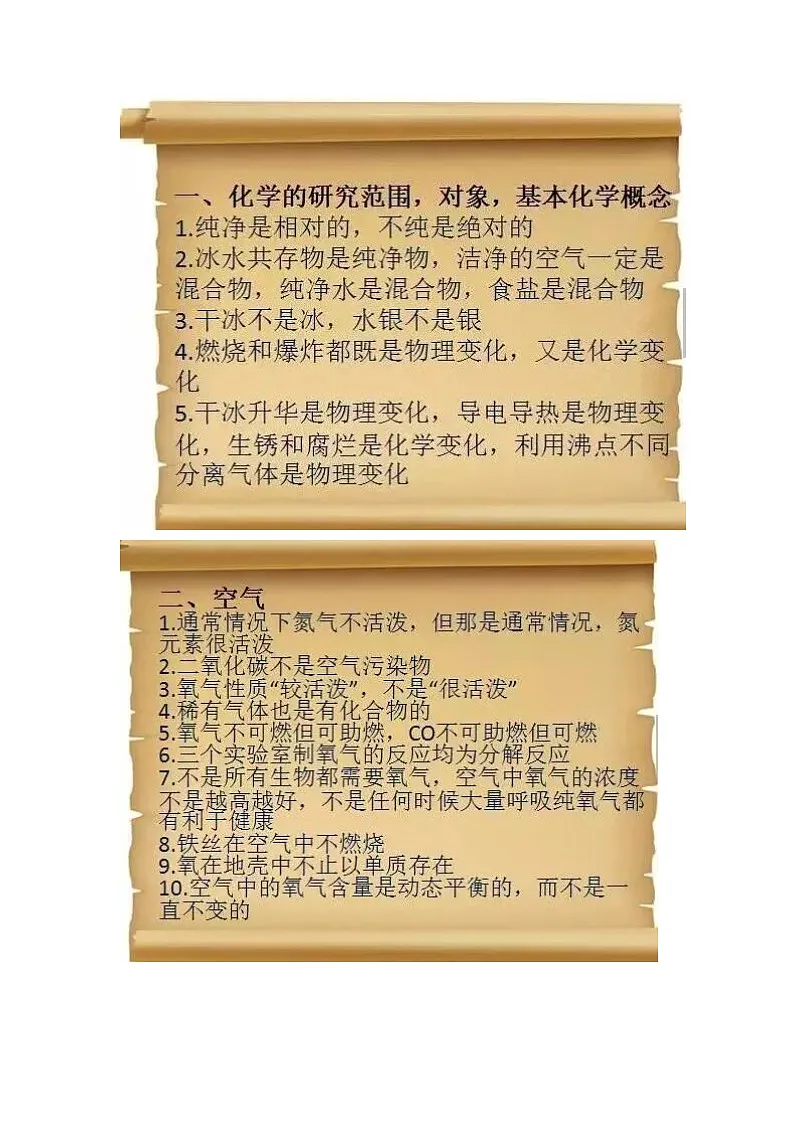 一、化学的研究范围，对象，基本化学概念
1.纯净是相对的，不纯是绝对的
2.冰水共存物是纯净物，洁净的空气一定是
混合物，纯净水是混合物，食盐是混合物
3.干冰不是冰，水银不是银
4.燃烧和爆炸都既是物理变化，又是化学变
化
5.干冰升华是物理变化，导电导热是物理变
化，生锈和腐烂是化学变化，利用沸点不同
分离气体是物理变化
二、空气
1.通常情况下氮气不活泼，但那是通常情况，氮
元素很活泼
2.二氧化碳不是空气污染物
3.氧气性质“较活泼”，不是“很活泼”
4.稀有气体也是有化合物的
5.氧气不可燃但可助燃，CO不可助燃但可燃
6.三个实验室制氧气的反应均为分解反应
7.不是所有生物都需要氧气，空气中氧气的浓度
不是越高越好，不是任何时候大量呼吸纯氧气都
有利于健康
8.铁丝在空气中不燃烧
9.氧在地壳中不止以单质存在
10.空气中的氧气含量是动态平衡的，而不是一
直不变的